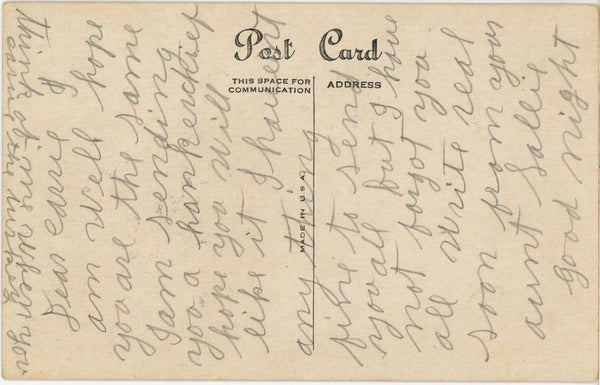 Post Card
THIS SPACE FOR
COMMUNICATION
ADDRESS
MADE IN U.S.A.
Dear Carrie I
am well hope
you are the same
I am sending
you a hankerchief
hope you will
like it I havent
any thing
fine to send
you all but I have
not forgot you
all write real
soon from your
aunt Sallie
good night
think of me when you
the